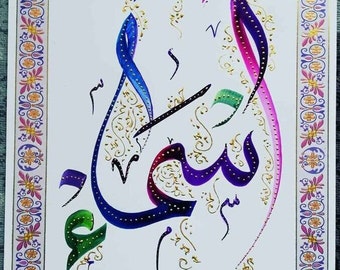 اسماء